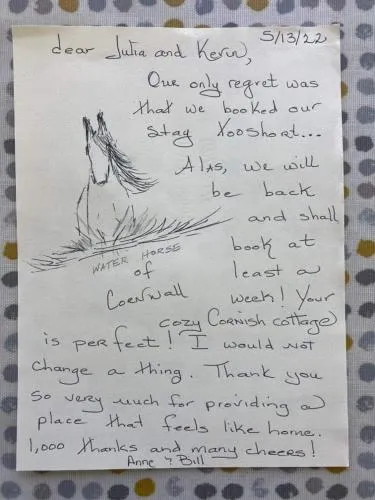 5/13/22
dear Julia and Kevin,
Our only regret was
that we booked our
stay TooShort...
Alas, we will
be back
and shall
book at
least a
week! Your
WATER HORSE
of
Cornwall
cozy Cornish cottage
is perfect! I would not
change a thing. Thank you
so very much for providing a
place that feels like home.
1,000 thanks and many cheers!
Anne & Bill